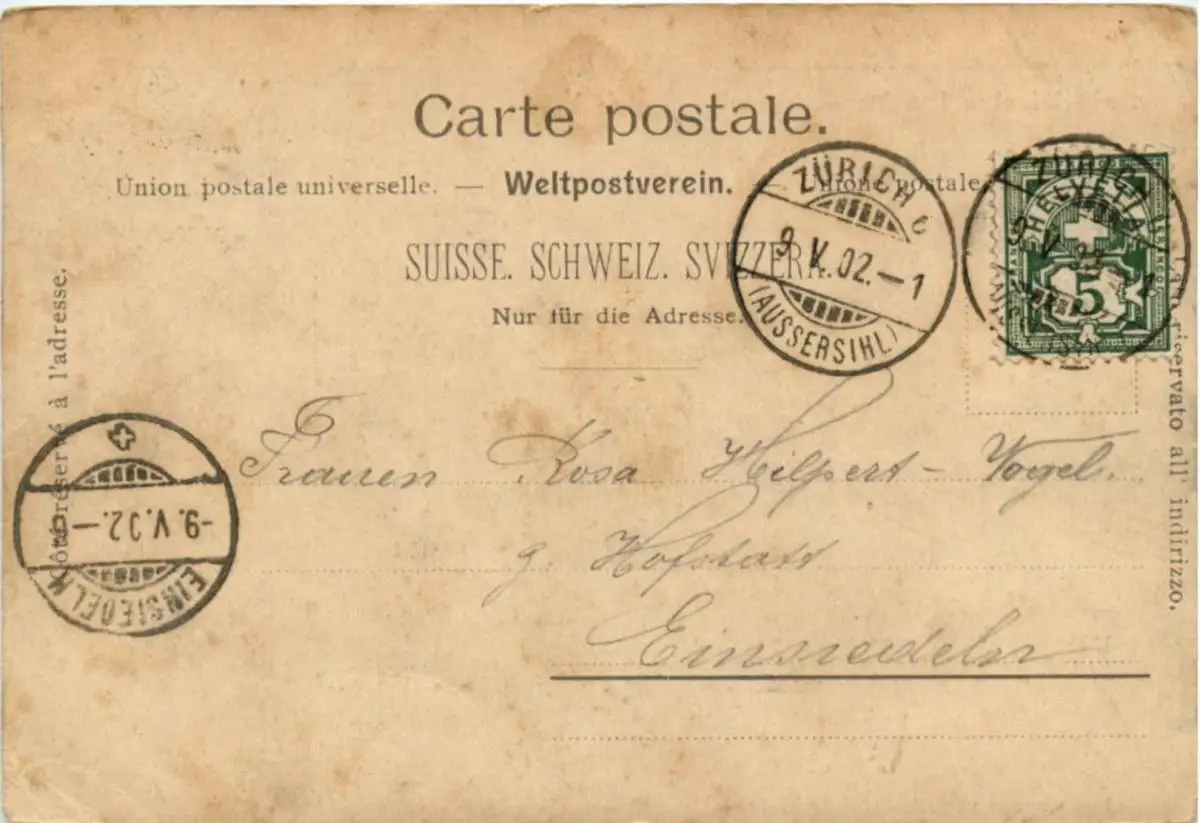 Carte postale.
Union postale universelle. — Weltpostverein. — Unione postale
SUISSE. SCHWEIZ. SVIZZERA.
Nur für die Adresse.
Côté réservé à l'adresse.
riservato all' indirizzo.
ZÜRICH 6
9.V.02.—1
(AUSSERSIHL)
ZÜRICH
HELVETIA
5
-9.V.02.—
EINSIEDELN
Frauen Rosa Hilpert-Vogel.
z. Hofstatt
Einsiedeln